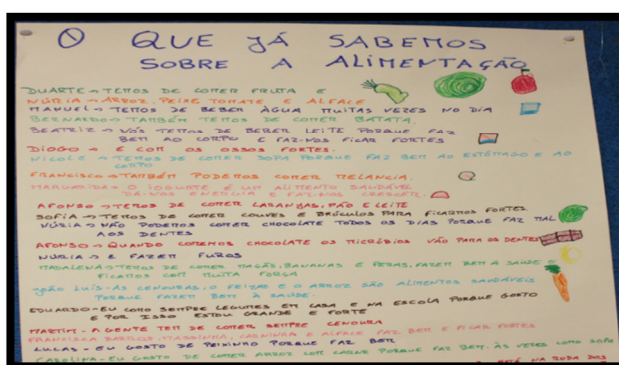 O QUE JÁ SABEMOS
SOBRE A ALIMENTAÇÃO
DUARTE → TEMOS DE COMER FRUTA E
NÚRIA → ARROZ, PEIXE, TOMATE E ALFACE
MANUEL → TEMOS DE BEBER ÁGUA MUITAS VEZES NO DIA
BERNARDO → TAMBÉM TEMOS DE COMER BATATA.
BEATRIZ → NÓS TEMOS DE BEBER LEITE PORQUE FAZ
BEM AO CORPO E FAZ-NOS FICAR FORTES
DIOGO → E COM OS OSSOS FORTES.
NICOLE → TEMOS DE COMER SOPA PORQUE FAZ BEM AO ESTÔMAGO E AO
CORPO.
FRANCISCO → TAMBÉM PODEMOS COMER MELANCIA.
MARGARIDA → O IOGURTE É UM ALIMENTO SAUDÁVEL
DÁ-NOS ENERGIA E FAZ-NOS CRESCER.
AFONSO → TEMOS DE COMER LARANJAS, PÃO E LEITE
SOFIA → TEMOS DE COMER COUVES E BRÓCULOS PARA FICARMOS FORTES
NÚRIA → NÃO PODEMOS COMER CHOCOLATE TODOS OS DIAS PORQUE FAZ MAL
AOS DENTES
AFONSO → QUANDO COMEMOS CHOCOLATE OS MICRÓBIOS VÃO PARA OS DENTES
NÚRIA → E FAZEM FUROS
MADALENA → TEMOS DE COMER MAÇÃS, BANANAS E PERAS, FAZEM BEM À SAÚDE E
FICAMOS COM MUITA FORÇA
JOÃO LUÍS - AS CENOURAS, O FEIJÃO E O ARROZ SÃO ALIMENTOS SAUDÁVEIS
PORQUE FAZEM BEM À SAÚDE.
EDUARDO - EU COMO SEMPRE LEGUMES EM CASA E NA ESCOLA PORQUE GOSTO
E POR ISSO ESTOU GRANDE E FORTE
MARTIM - A GENTE TEM DE COMER SEMPRE CENOURA
FRANCISCA BARROS - MASSINHA, CARNINHA E ALFACE FAZ BEM E FICAR FORTES
LUCAS - EU GOSTO DE PEIXINHO PORQUE FAZ BEM
CAROLINA - EU GOSTO DE COMER ARROZ COM CARNE PORQUE FAZ BEM. ÀS VEZES COMO SOPA
ESTÁ NA RODA DOS